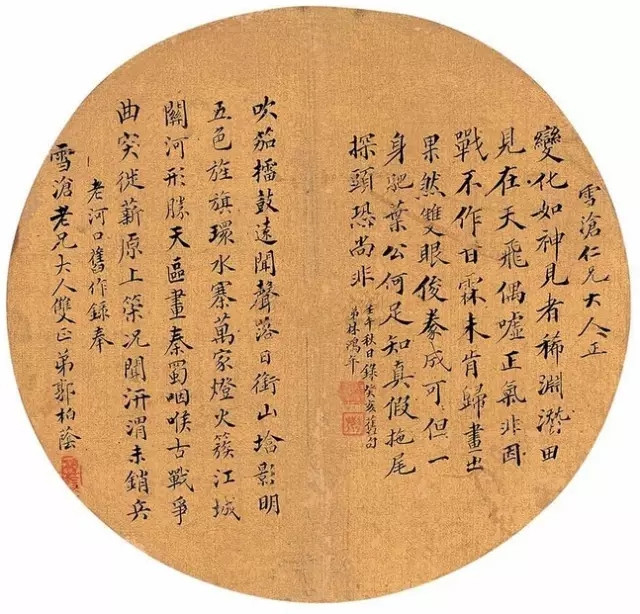 雪滄仁兄大人正
變化如神見者稀淵潛田
見在天飛偶噓正氣非因
戰不作甘霖未肯歸畫出
果然雙眼俊豢成可但一
身肥葉公何足知真假拖尾
探頭恐尚非
壬午秋日錄癸亥舊句
弟林鴻年
吹笳擂鼓遠聞聲落日銜山堞影明
五色旌旗環水寨萬家燈火簇江城
關河形勝天區畫秦蜀咽喉古戰爭
曲突徙薪原上策況聞汧渭未銷兵
老河口舊作錄奉
雪滄老兄大人雙正弟郭柏蔭